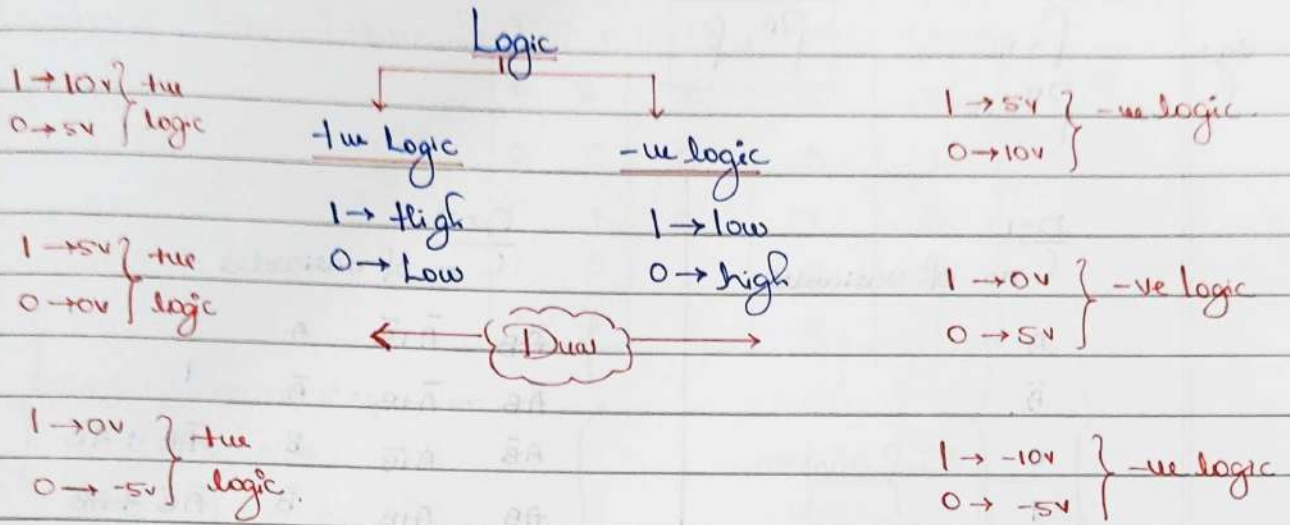 Logic
1 → 10v } +ve
0 → 5v } logic
+ve Logic
1 → High
0 → Low
-ve logic
1 → low
0 → high
1 → 5v } -ve logic.
0 → 10v
1 → 5v } +ve
0 → 0v } logic
Dual
1 → 0v } -ve logic
0 → 5v
1 → 0v } +ve
0 → -5v } logic.
1 → -10v } -ve logic
0 → -5v